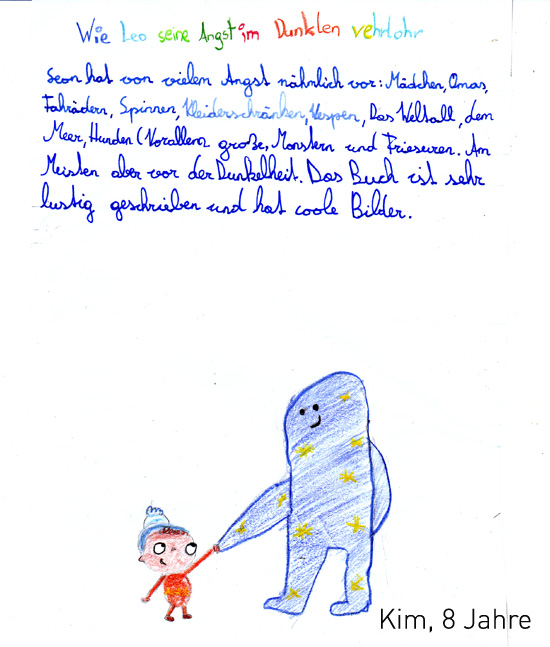 Wie Leo seine Angst im Dunklen vehrlohr
Leon hat von vielem Angst nähmlich vor: Mädchen, Omas,
Fahrädern, Spinnen, Kleiderschränken, Wespen, Das Weltall, dem
Meer, Hunden (Vorallem große, Monstern und Frieseuren. Am
Meisten aber vor der Dunkelheit. Das Buch ist sehr
lustig geschrieben und hat coole Bilder.
Kim, 8 Jahre